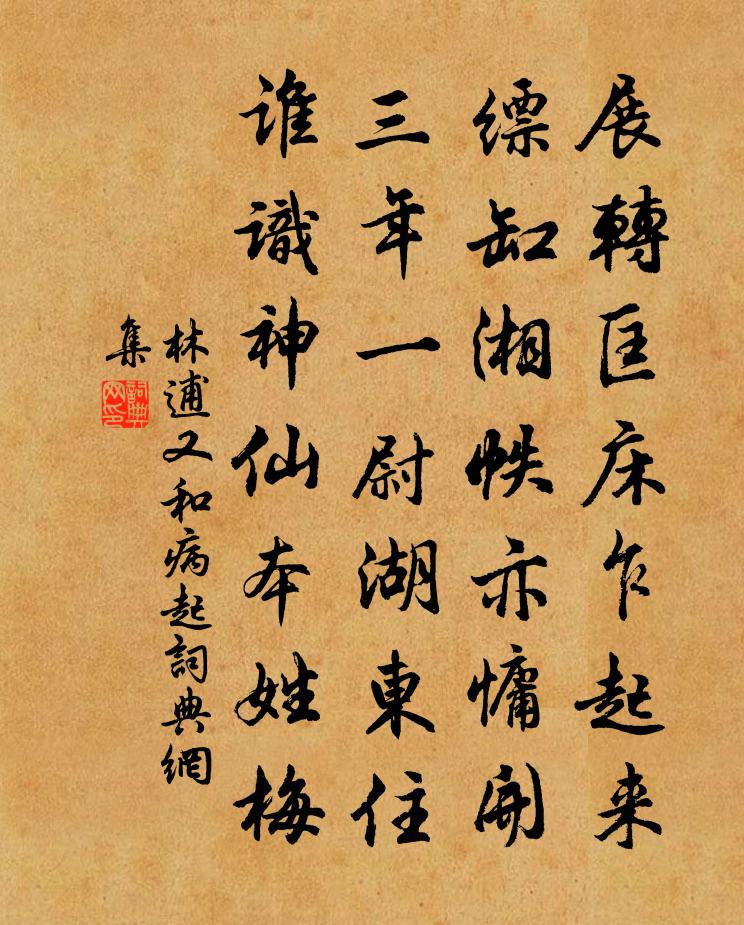 展轉匡床乍起来
缥缸湘帙亦慵開
三年一尉湖東住
谁識神仙本姓梅
林逋又和病起詞典網
集
詞典
网印